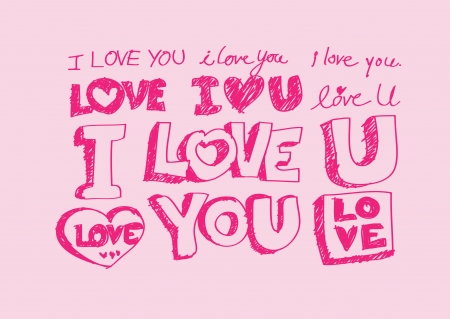 I LOVE YOU i love you I love you.
LOVE I ♥ U love U
I LOVE U
LOVE YOU LO
VE